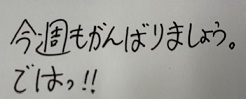 今週もがんばりましょう。
ではっ!!